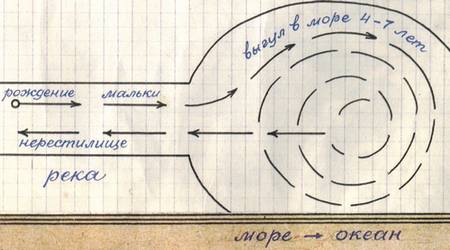 выгул в море 4-7 лет
рождение мальки
нерестилище
река
море → океан